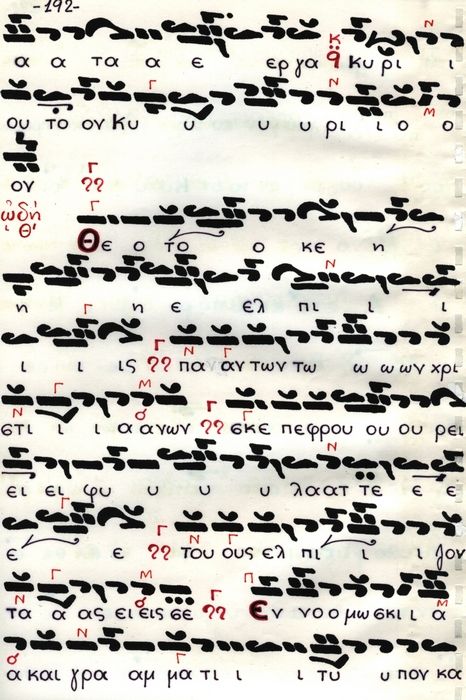 -192-
α α τα α ε ερ γα κ ϙ Κυ ρι ι
ου το ον Κυ υ υ υ ρι ο ο
ον
ὠδὴ θ'
Θε ο το ο κε η
η η ε ελ πι ι ι
ι ι ις πα αν των τω ω ω ων χρι
στι ι ι α α νων σκε πε φρου ου ου ρει
ει ει φυ υ υ υ λα ατ τε ε ε
ε ε ε του ους ελ πι ι ζον
τα α ας ει εις σε Εν νο ο μω σκι ι α
α και γρα αμ μα τι ι ι τυ υ πον κα